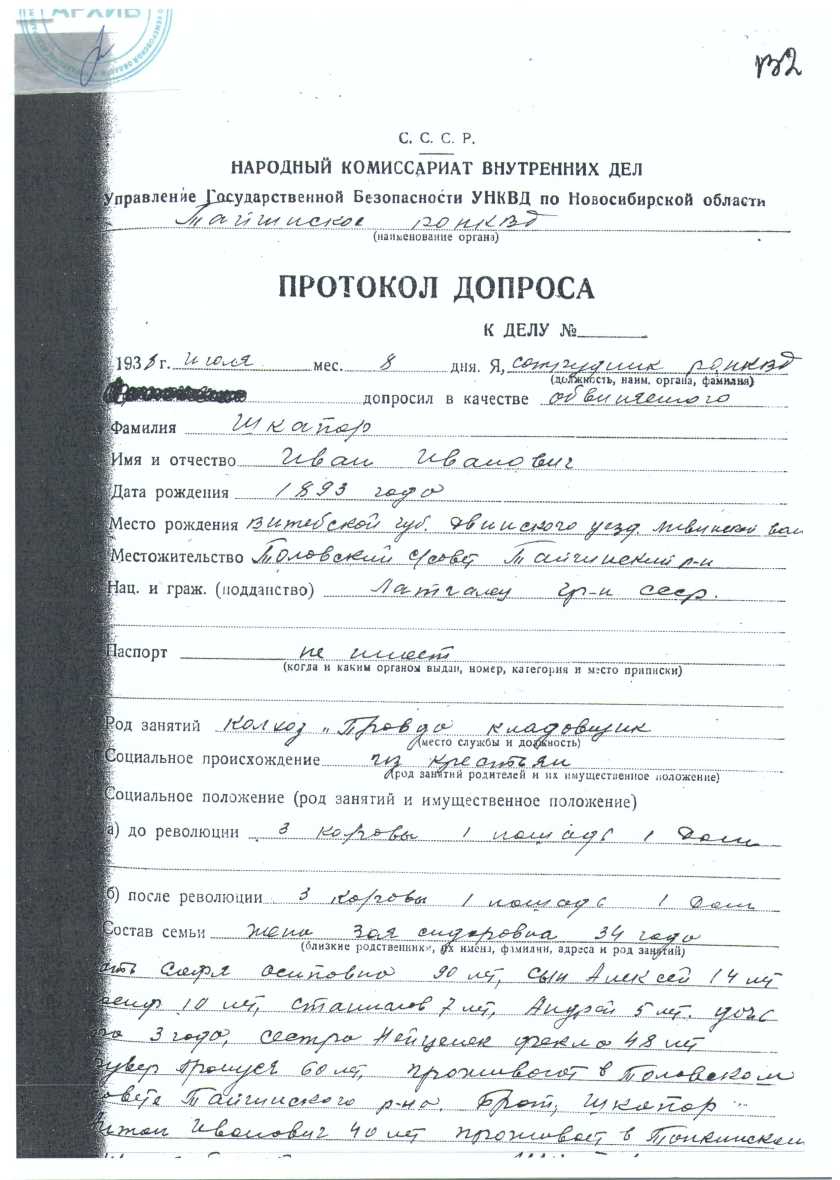 АРХИВ
132
С. С. С. Р.
НАРОДНЫЙ КОМИССАРИАТ ВНУТРЕННИХ ДЕЛ
Управление Государственной Безопасности УНКВД по Новосибирской области
Тайгинское РОНКВД
(наименование органа)
ПРОТОКОЛ ДОПРОСА
К ДЕЛУ №
1938 г. июля мес. 8 дня. Я, сотрудник РОНКВД
(должность, наим. органа, фамилия)
допросил в качестве обвиняемого
Фамилия Шкапор
Имя и отчество Иван Иванович
Дата рождения 1893 года
Место рождения Витебской губ. Двинского уезд. Ливинской вол
Местожительство Таловский с/совет Тайгинский р-н
Нац. и граж. (подданство) Латгалец гр-н СССР.
Паспорт не имеет
(когда и каким органом выдан, номер, категория и место приписки)
Род занятий Колхоз „Правда кладовщик
(место службы и должность)
Социальное происхождение из крестьян
(род занятий родителей и их имущественное положение)
Социальное положение (род занятий и имущественное положение)
а) до революции 3 коровы 1 лошадь 1 дом
б) после революции 3 коровы 1 лошадь 1 дом
Состав семьи жена Зоя Сидоровна 34 года
(близкие родственники, их имена, фамилии, адреса и род занятий)
Софья Осиповна 90 лет, сын Алексей 14 лет
10 лет, Станислав 7 лет, Андрей 5 лет. дочь
3 года, сестра Фекла 48 лет
60 лет, проживают в Таловском
Тайгинского р-на. Брат, Шкапор
Иванович 40 лет проживает в Топкинском